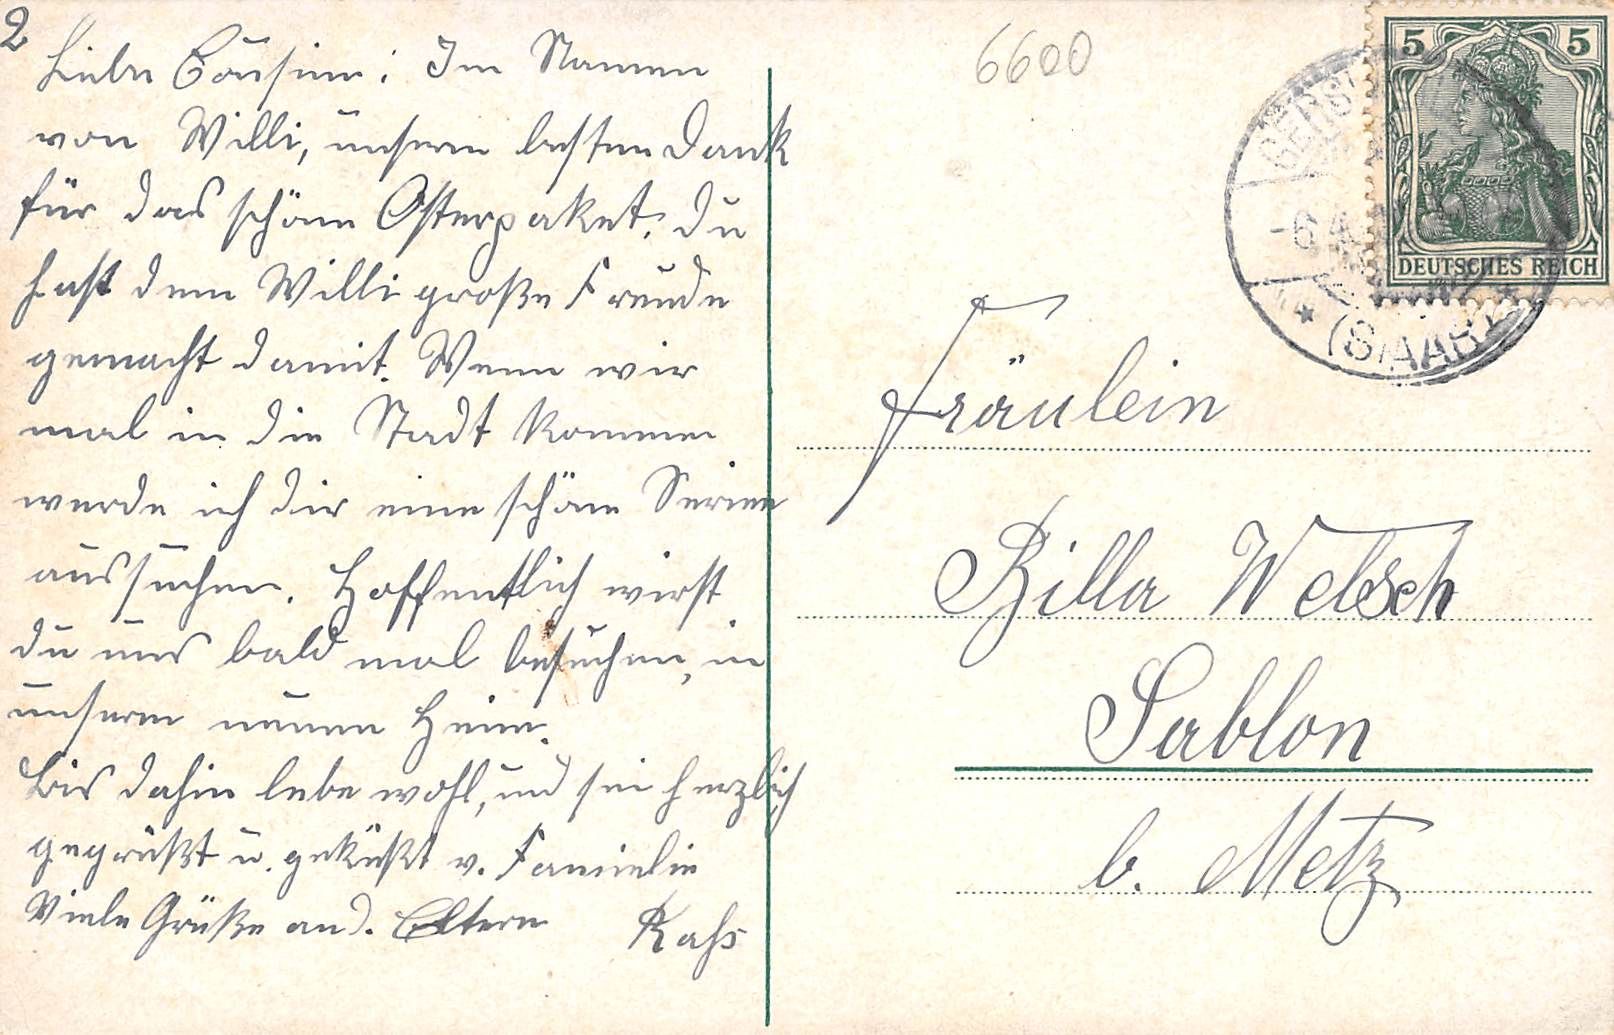 2
Liebe Cousine! Im Namen
von Willi, unseren besten Dank
für das schöne Osterpaket. Du
hast dem Willi große Freude
gemacht damit. Wenn wir
mal in die Stadt kommen
werde ich dir eine schöne Serien
aussuchen. Hoffentlich wirst
du uns bald mal besuchen, in
unserem neuen Heim.
Bis dahin lebe wohl, und sei herzlich
gegrüßt u. geküßt v. Familie
Viele Grüße an d. Eltern
6600
5 5
DEUTSCHES REICH
GERS
-6.4.
(SAAR)
Fräulein
Billa Welsch
Sablon
b. Metz